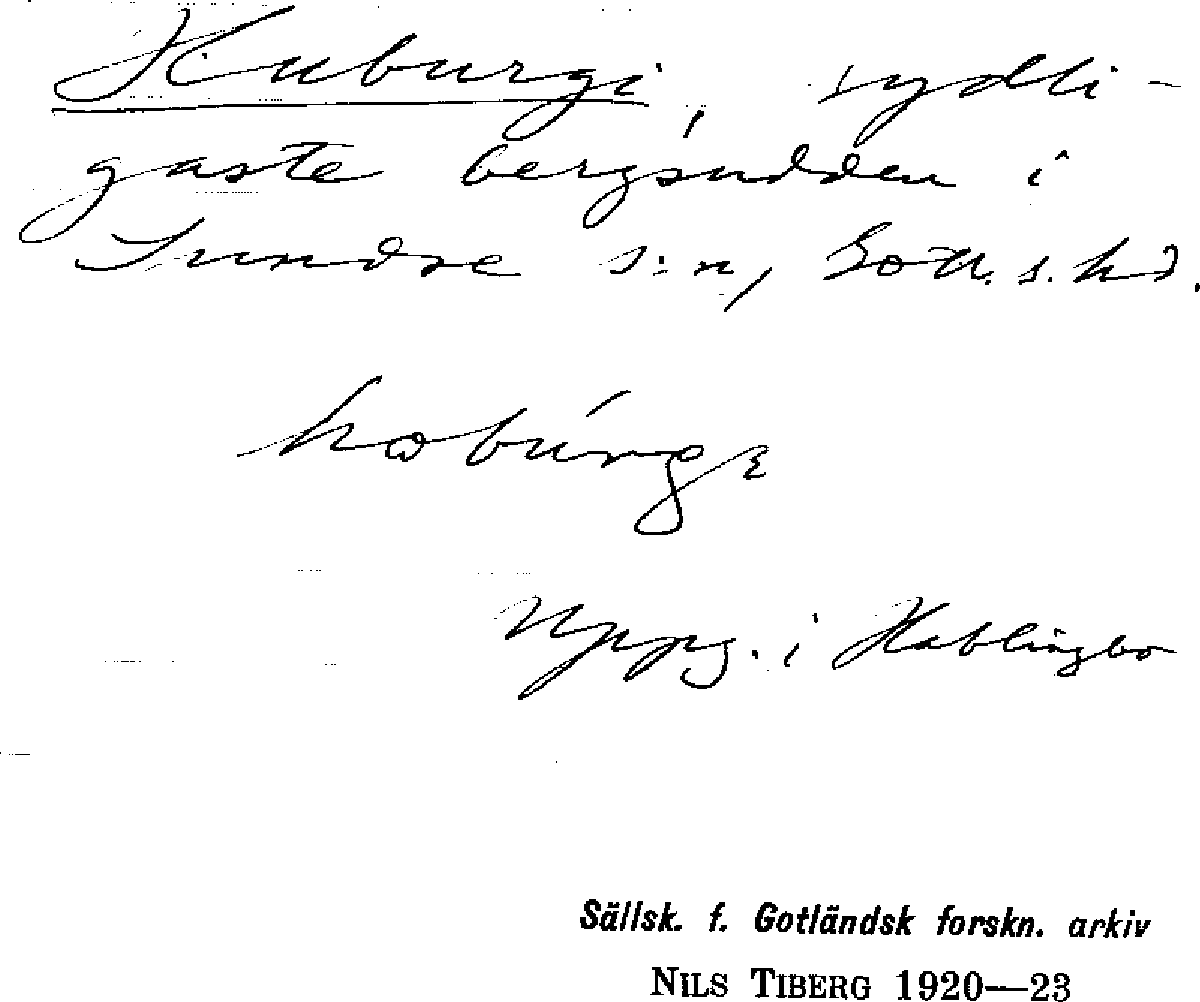 Huburgi, sydli-
gaste bergsudden i
Sundre s:n, Gotl. s. hd.
hɷbúrgɛ
Uppg. i Hablingbo
Sällsk. f. Gotländsk forskn. arkiv
NILS TIBERG 1920—23